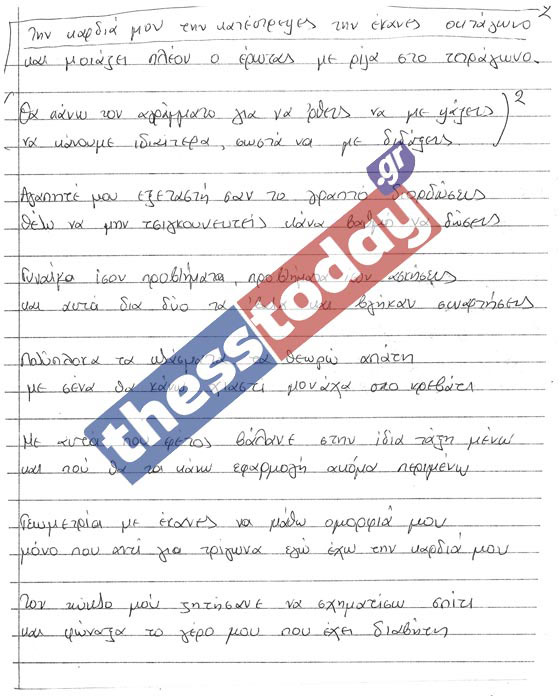 Την καρδιά μου την κατέστρεψες την έκανες οκτάγωνο 2
και μοιάζει πλέον ο έρωτας με ρίζα στο τετράγωνο.
(Θα κάνω τον αγράμματο για να 'ρθεις να με ψάξεις
να κάνουμε ιδιαίτερα, σωστά να με διδάξεις.)²
Αγαπητέ μου εξεταστή σαν το γραπτό διορθώσεις
θέλω να μην τσιγκουνευτείς κάνα βαθμό να δώσεις
Γυναίκα ίσον προβλήματα, προβλήματα ίσον ασκήσεις
και αυτά δια δύο τα και βγήκαν συναρτήσεις
Πολύπλοκα τα κλάσματα τα θεωρώ απάτη
με σένα θα κάνω χιαστί μονάχα στο κρεβάτι
Με αυτά που φέτος βάλανε στην ίδια τάξη μένω
και πού θα τα κάνω εφαρμογή ακόμα περιμένω
Γεωμετρία με έκανες να μάθω ομορφιά μου
μόνο που αντί για τρίγωνα εγώ έχω την καρδιά μου
Τον κύκλο μού ζητήσανε να σχηματίσω σπίτι
και φώναξα το γέρο μου που έχει διαβήτη
thesstoday.gr